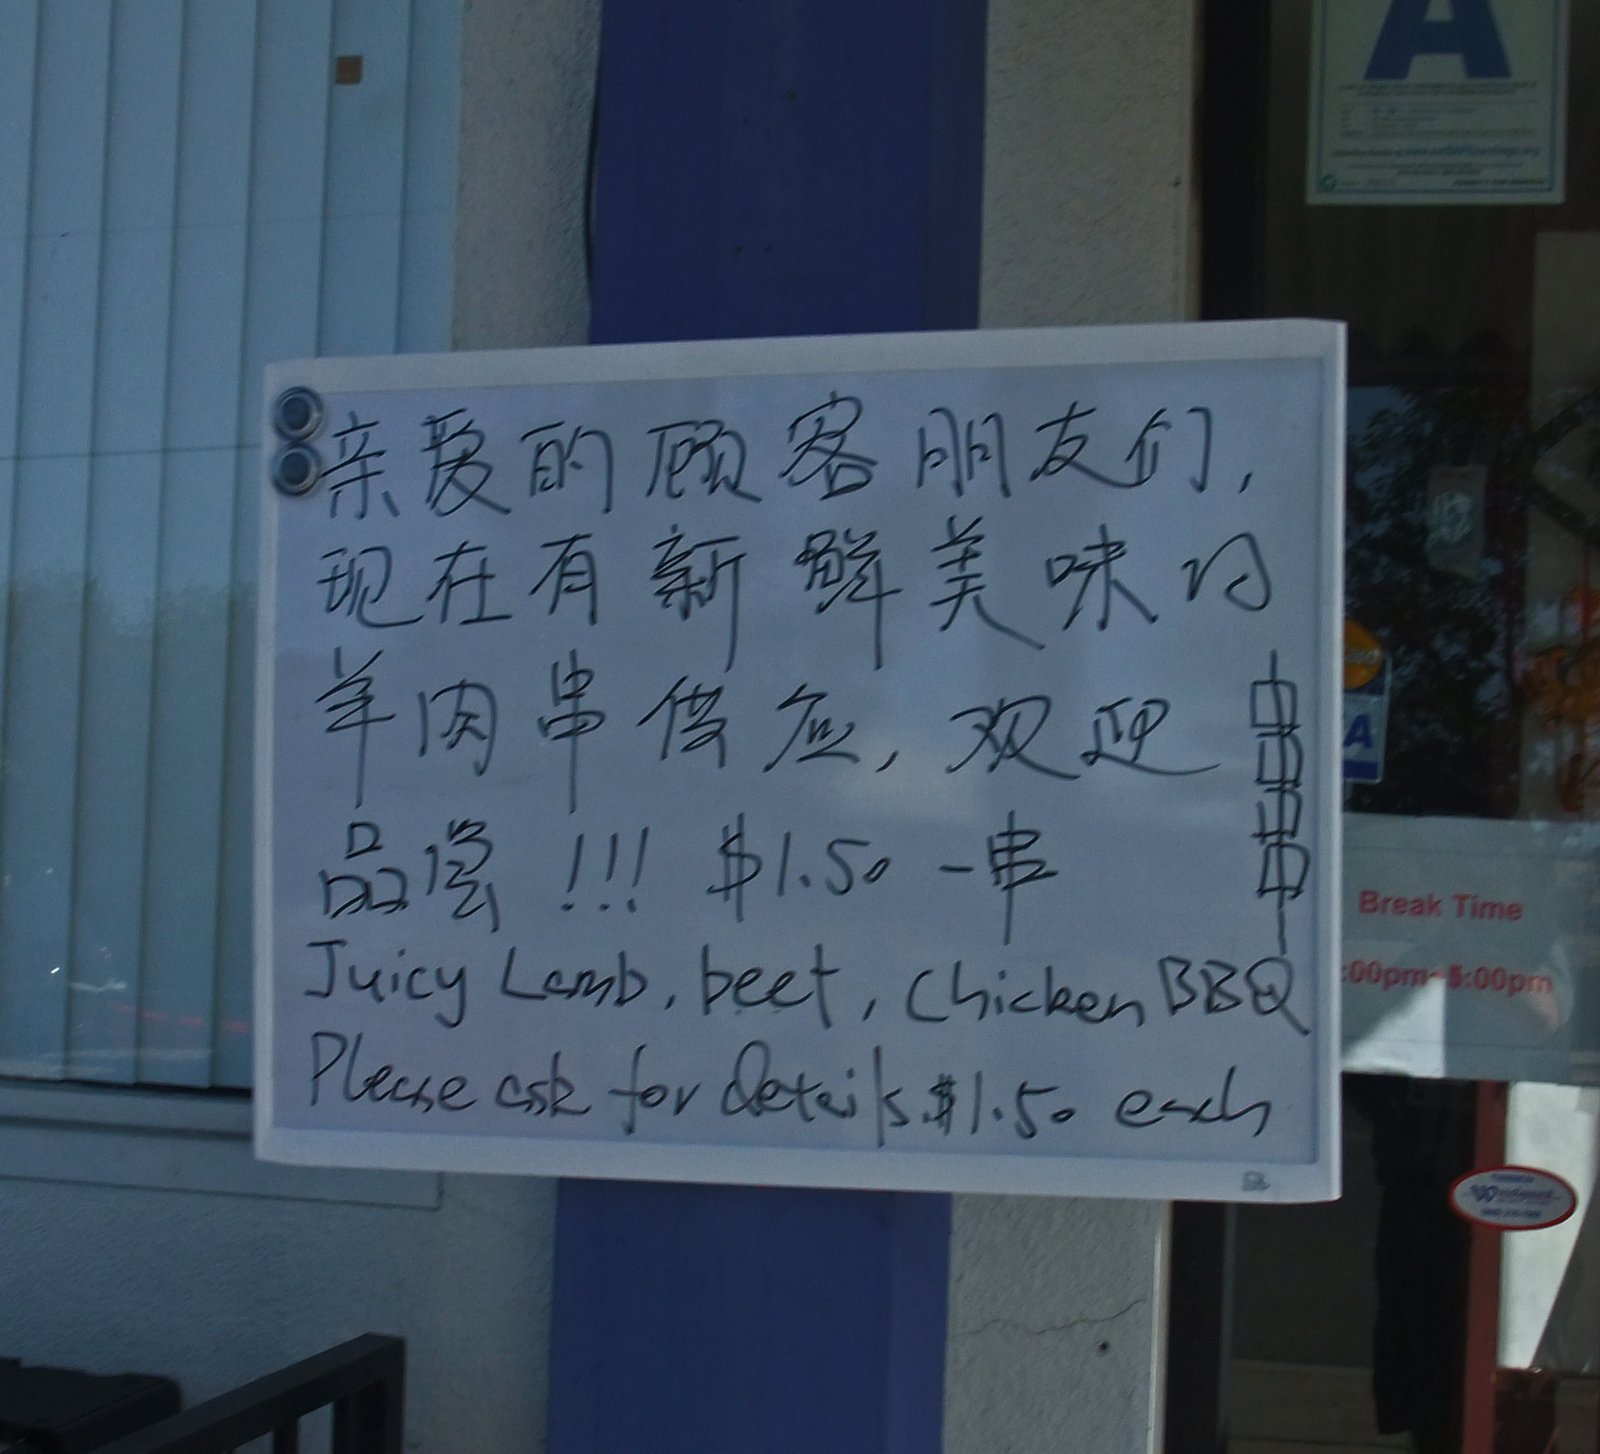 亲爱的顾客朋友们，
现在有新鲜美味的
羊肉串供应，欢迎
品尝！！！ $1.50 一串
Juicy Lamb, beef, chicken BBQ
Please ask for details $1.50 each
A
A
Break Time
:00pm-5:00pm